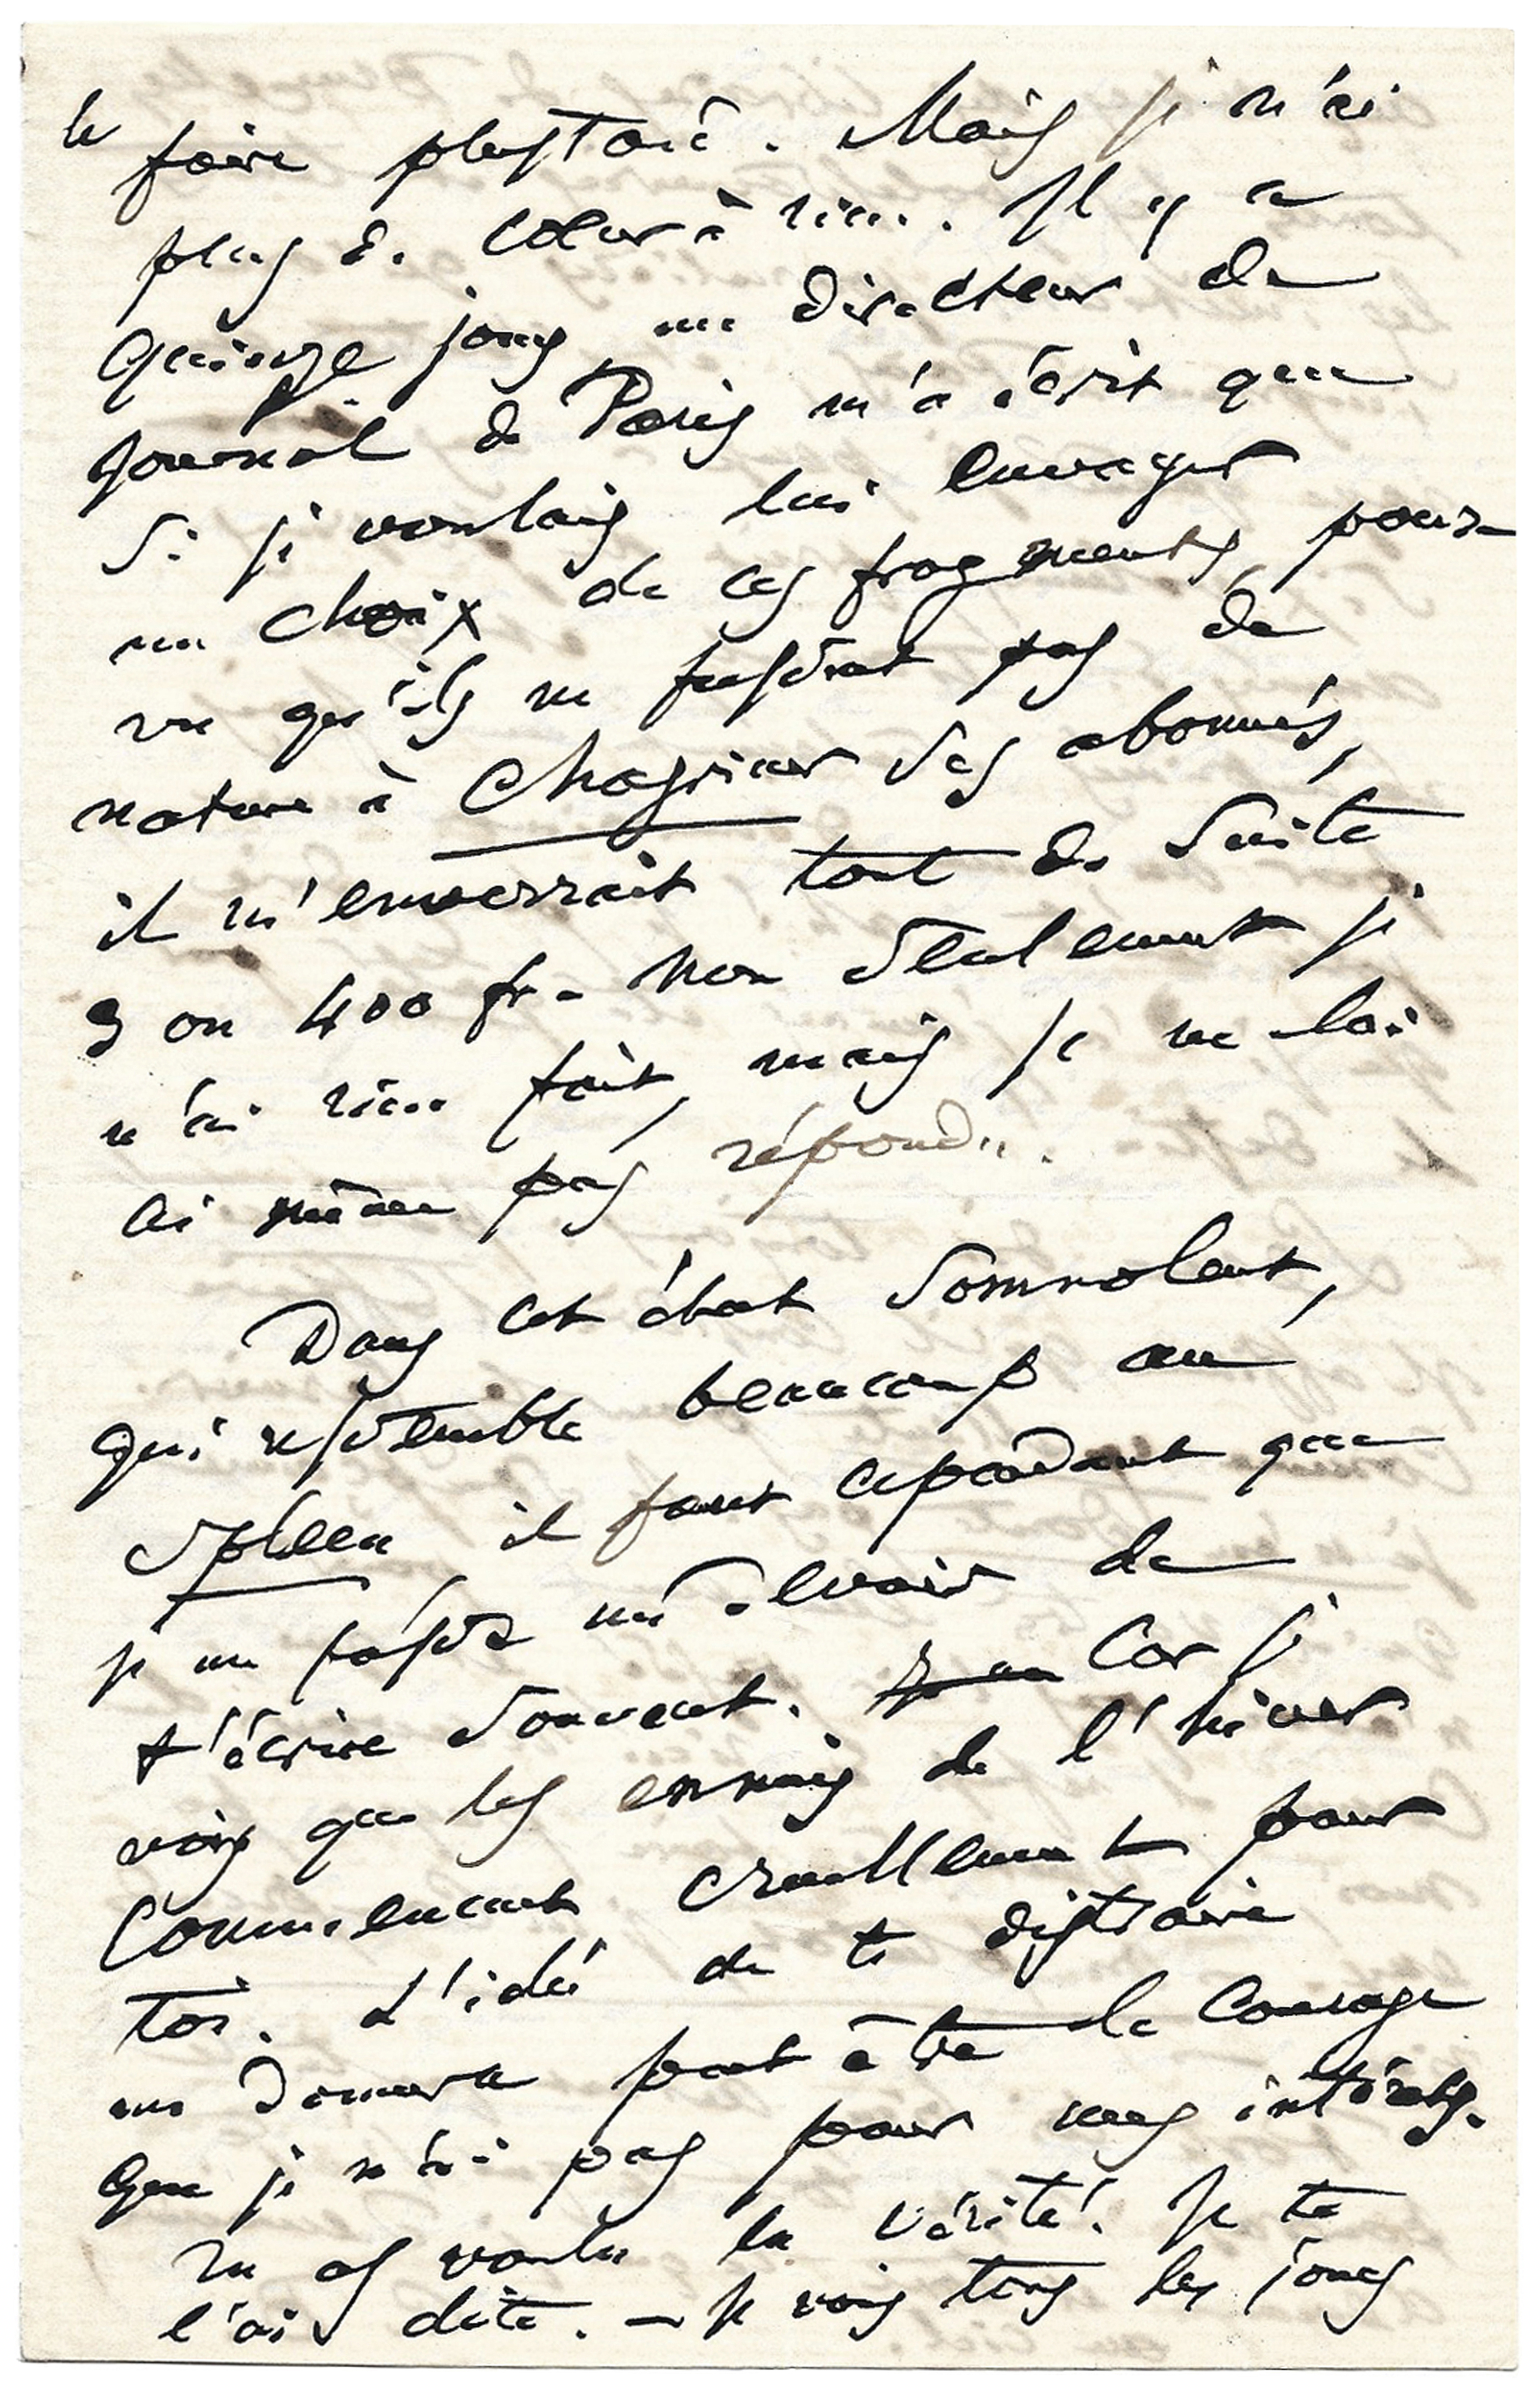 le
faire plus tard. Mais je n'ai
plus de cœur à rien. Il y a
quinze jours un directeur de
journal de Paris m'a écrit que
si je voulais lui envoyer
un choix de ces fragments, pour-
vu qu'ils ne fussent pas de
nature à chagriner ses abonnés,
il m'enverrait tout de suite
3 ou 400 fr. Non seulement je
n'ai rien fait, mais je ne lui
ai même pas répondu.
Dans cet état somnolent,
qui ressemble beaucoup au
spleen il faut cependant que
je me fasse un devoir de
t'écrire souvent. Car je
vois que les ennuis de l'hiver
commencent cruellement pour
toi. L'idée de te distraire
me donnera peut être le courage
que je n'ai pas pour mes intérêts.
Tu as voulu la vérité. Je te
l'ai dite. — Je vois tous les jours